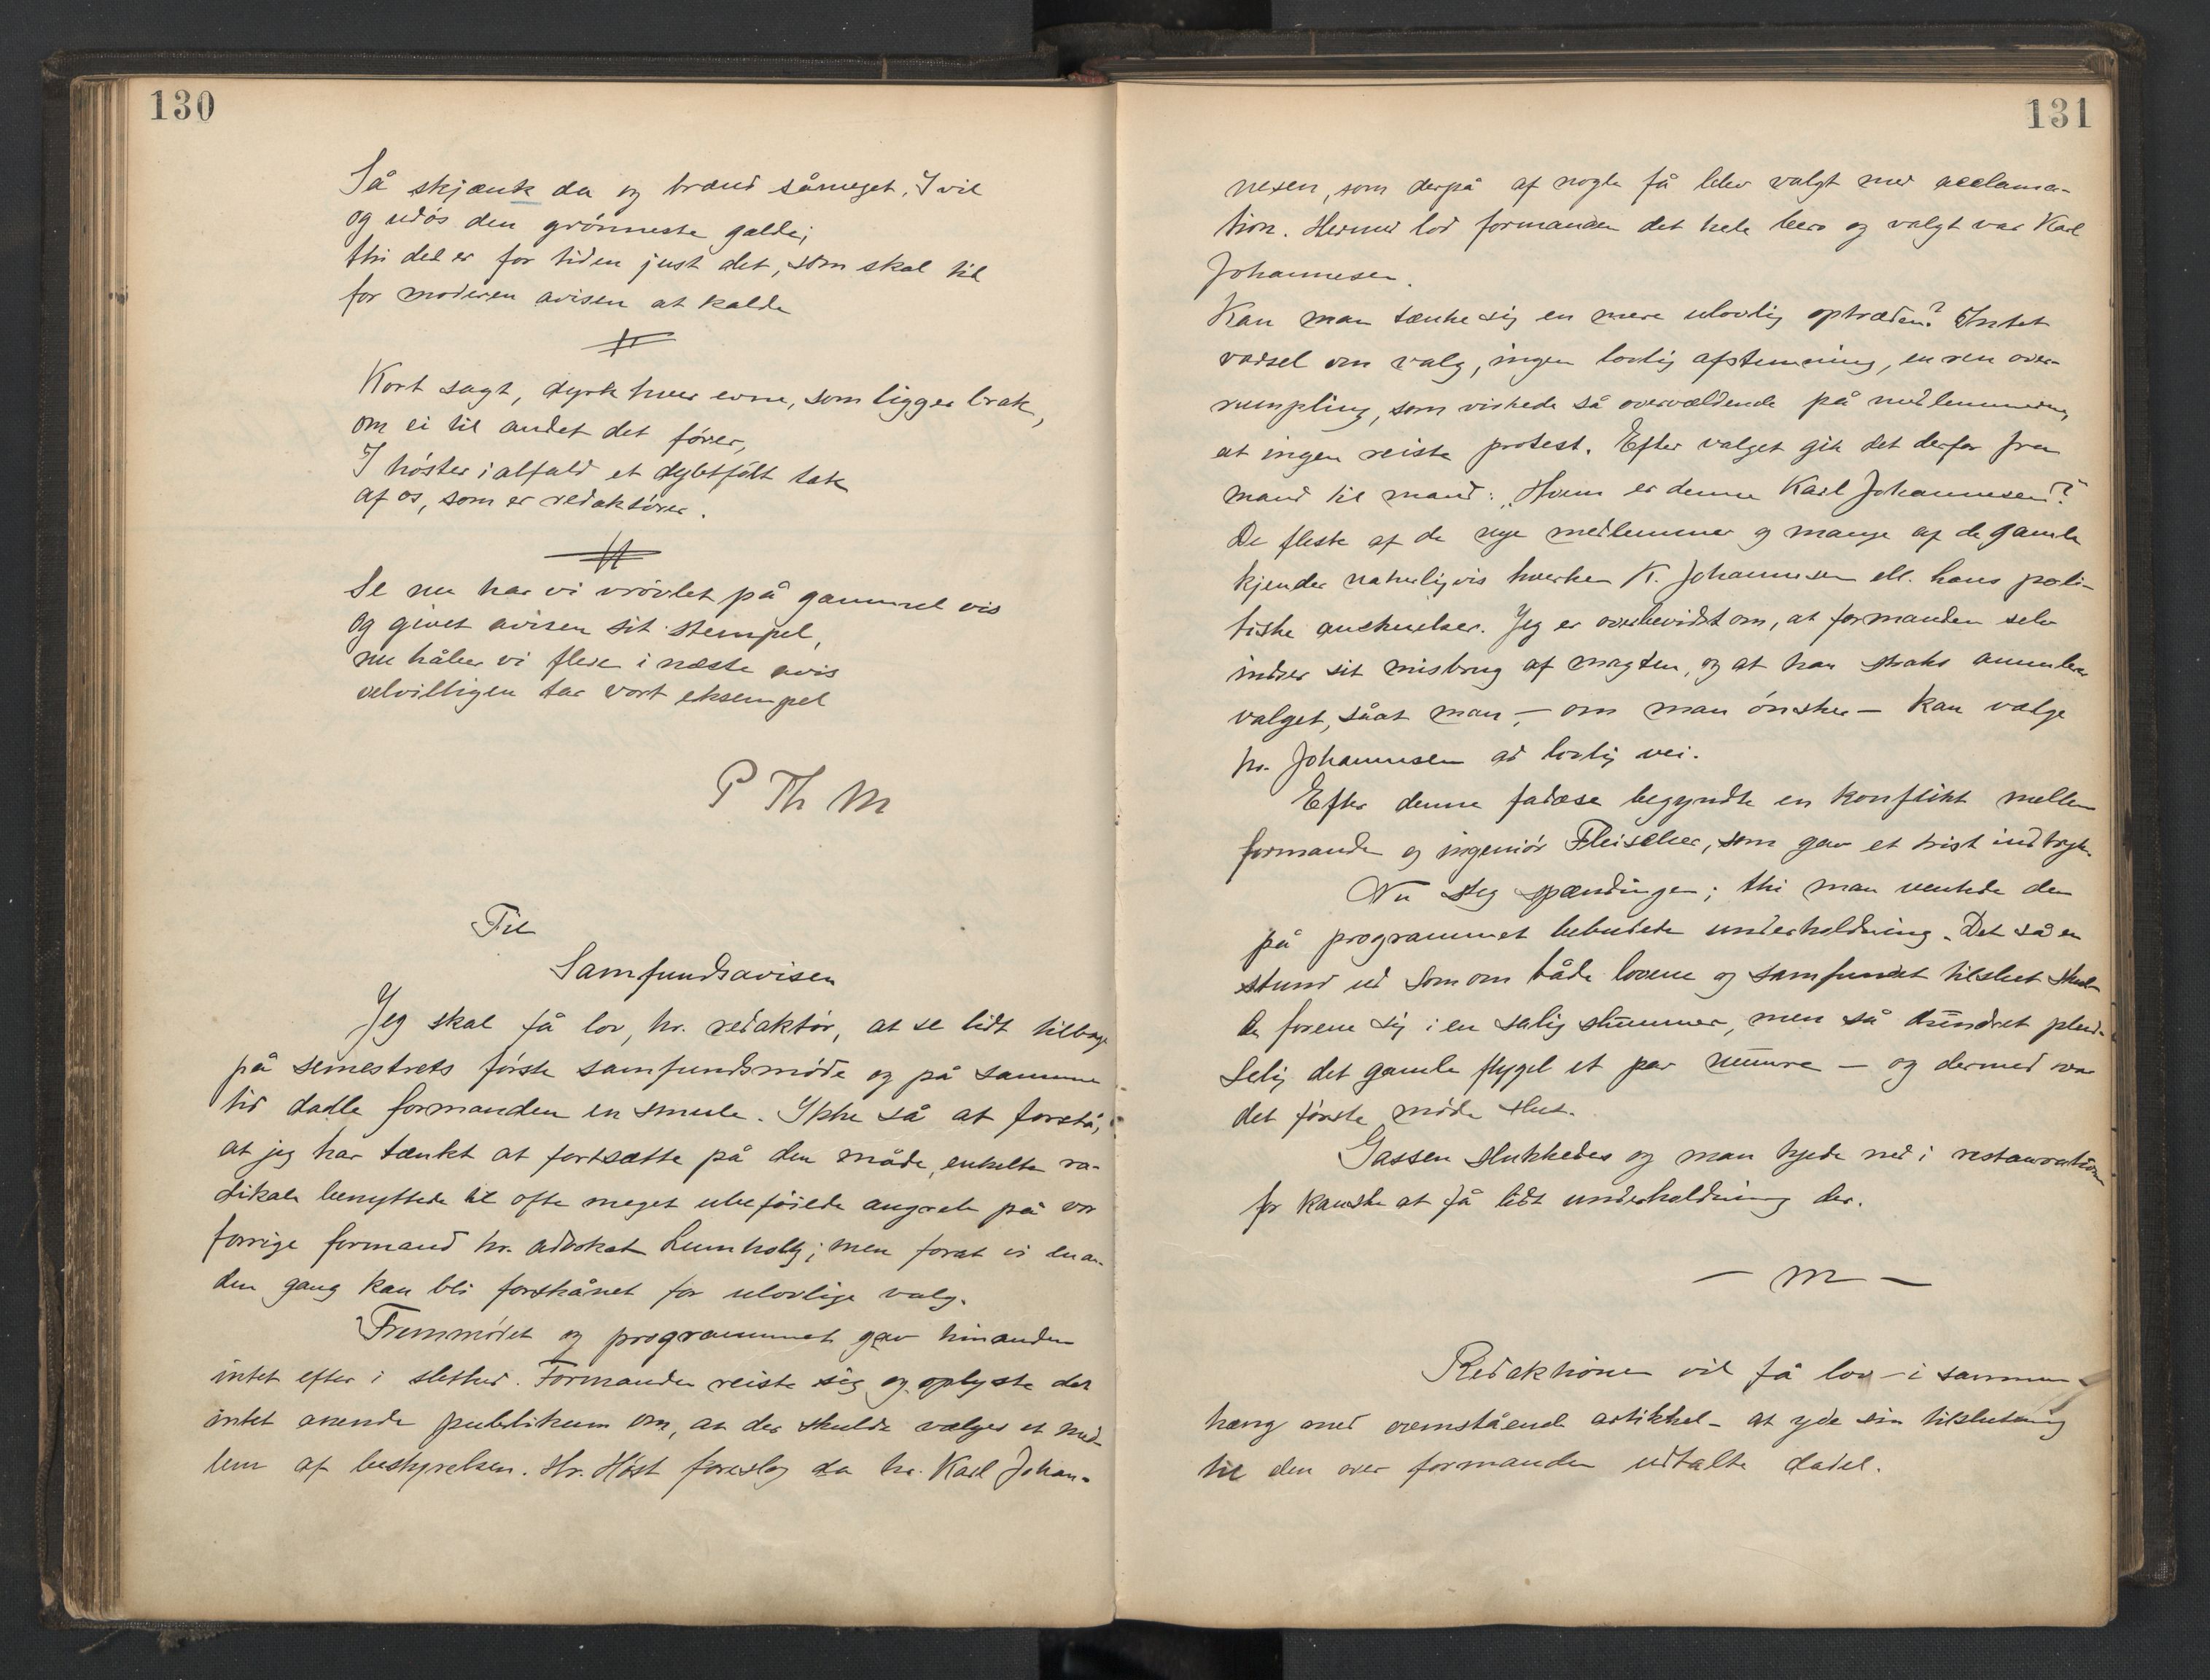 130
Så skjænk da og brænd såmeget I vil
og udøs den grønneste galde;
thi det er for tiden just det, som skal til
for moderen avisen at kalde
Kort sagt, dyrk hver evne, som ligger brak,
om ei til andet det fører,
I høster ialfald et dybtfølt tak
af os, som er redaktører.
Se nu har vi vrøvlet på gammel vis
og givet avisen sit stempel,
nu håber vi flere i næste avis
velvilligen tar vort eksempel
P Th M
Til
Samfundsavisen
Jeg skal få lov, hr. redaktør, at se lidt tilbage
på semestrets første samfundsmøde og på samme
tid dadle formanden en smule. Ikke så at forstå,
at jeg har tænkt at fortsætte på den måde, enkelte ra-
dikale benyttede til ofte meget ubeføiede angreb på vor
forrige formand hr. advokat Lumholtz; men forat vi en an-
den gang kan bli forskånet for ulovlige valg.
Fremmødet og programmet gav hinanden
intet efter i slethed. Formanden reiste sig og oplyste det
intet anende publikum om, at der skulde vælges et med-
lem af bestyrelsen. Hr. Høst foreslog da hr. Karl Johan-
131
nesen, som derpå af nogle få blev valgt med acclama-
tion. Hermed lod formanden det hele bero og valgt var Karl
Johannesen.
Kan man tænke sig en mere ulovlig optræden? Intet
varsel om valg, ingen lovlig afstemning, en ren over-
rumpling, som virkede så overvældende på medlemmerne,
at ingen reiste protest. Efter valget gik det derfor fra
mand til mand: „Hvem er denne Karl Johannesen?
De fleste af de nye medlemmer og mange af de gamle
kjender naturligvis hverken K. Johannesen ell. hans poli-
tiske anskuelser. Jeg er overbevidst om, at formanden selv
indser sit misbrug af magten, og at han straks annulere
valget, såat man, – om man ønsker – kan vælge
hr. Johannesen ad lovlig vei.
Efter denne fadæse begyndte en konflikt mellem
formanden og ingeniør Fleischer, som gav et trist indtryk.
Nu steg spændingen; thi man ventede den
på programmet bebudede underholdning. Det så en
stund ud som om både lovene og samfundet tilslut skul-
de forene sig i en salig slummer, men så dundret pluds-
selig det gamle flygel et par numre – og dermed var
det første møde slut.
Gassen slukkedes og man tyede ned i restaurationen
for kanske at få lidt underholdning der.
– m –
Redaktionen vil få lov – i sammen-
hæng med ovenstående artikkel – at yde sin tilslutning
til den over formanden udtalte dadel.